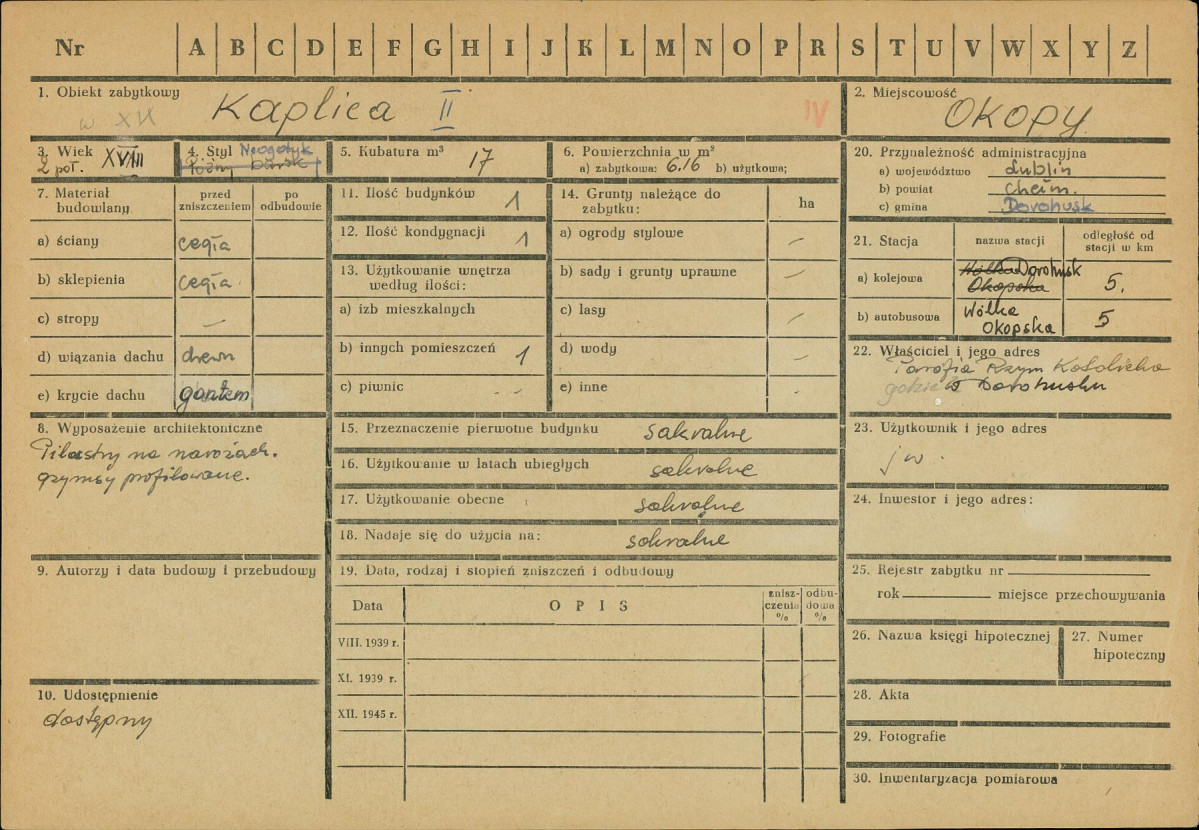 Nr A B C D E F G H I J K L M N O P R S T U V W X Y Z
1. Obiekt zabytkowy
Kaplica II
IV
2. Miejscowość
OKOPY
3. Wiek
2 poł. XVIII
4. Styl Neogotyk
Późny barok
5. Kubatura m³ 17
6. Powierzchnia w m²
a) zabytkowa: 6.16 b) użytkowa;
7. Materiał budowlany
przed zniszczeniem
po odbudowie
a) ściany cegła
b) sklepienia cegła
c) stropy —
d) wiązania dachu drewn
e) krycie dachu gontem
8. Wyposażenie architektoniczne
Pilastry na narożach.
gzymsy profilowane.
9. Autorzy i data budowy i przebudowy
10. Udostępnienie
dostępny
11. Ilość budynków 1
12. Ilość kondygnacji 1
13. Użytkowanie wnętrza
według ilości:
a) izb mieszkalnych
b) innych pomieszczeń 1
c) piwnic - -
14. Grunty należące do
zabytku: ha
a) ogrody stylowe —
b) sady i grunty uprawne —
c) lasy —
d) wody —
e) inne -
15. Przeznaczenie pierwotne budynku sakralne
16. Użytkowanie w latach ubiegłych sakralne
17. Użytkowanie obecne sakralne
18. Nadaje się do użycia na: sakralne
19. Data, rodzaj i stopień zniszczeń i odbudowy
Data OPIS znisz-czenia % odbu-dowa %
VIII. 1939 r.
XI. 1939 r.
XII. 1945 r.
20. Przynależność administracyjna
a) województwo Lublin
b) powiat Chełm.
c) gmina Dorohusk
21. Stacja
nazwa stacji
odległość od
stacji w km
a) kolejowa Wólka Okopska Dorohusk 5.
b) autobusowa Wólka Okopska 5
22. Właściciel i jego adres
Parafia Rzym Katolicka
w Dorohusku
23. Użytkownik i jego adres
jw.
24. Inwestor i jego adres:
25. Rejestr zabytku nr
rok miejsce przechowywania
26. Nazwa księgi hipotecznej
27. Numer
hipoteczny
28. Akta
29. Fotografie
30. Inwentaryzacja pomiarowa